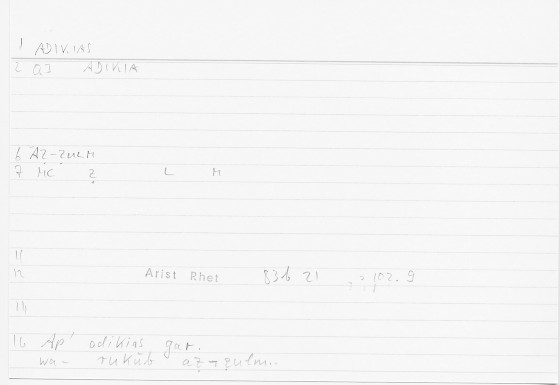 1 ADIKIAS
2 QI ADIKIA
6 AẒ-ẒULM
7 MC Ẓ L M
11
12 Arist Rhet 83b 21 102.9
14
16 Ap' adikias gar.
wa- rukūb aẓ-ẓulm..